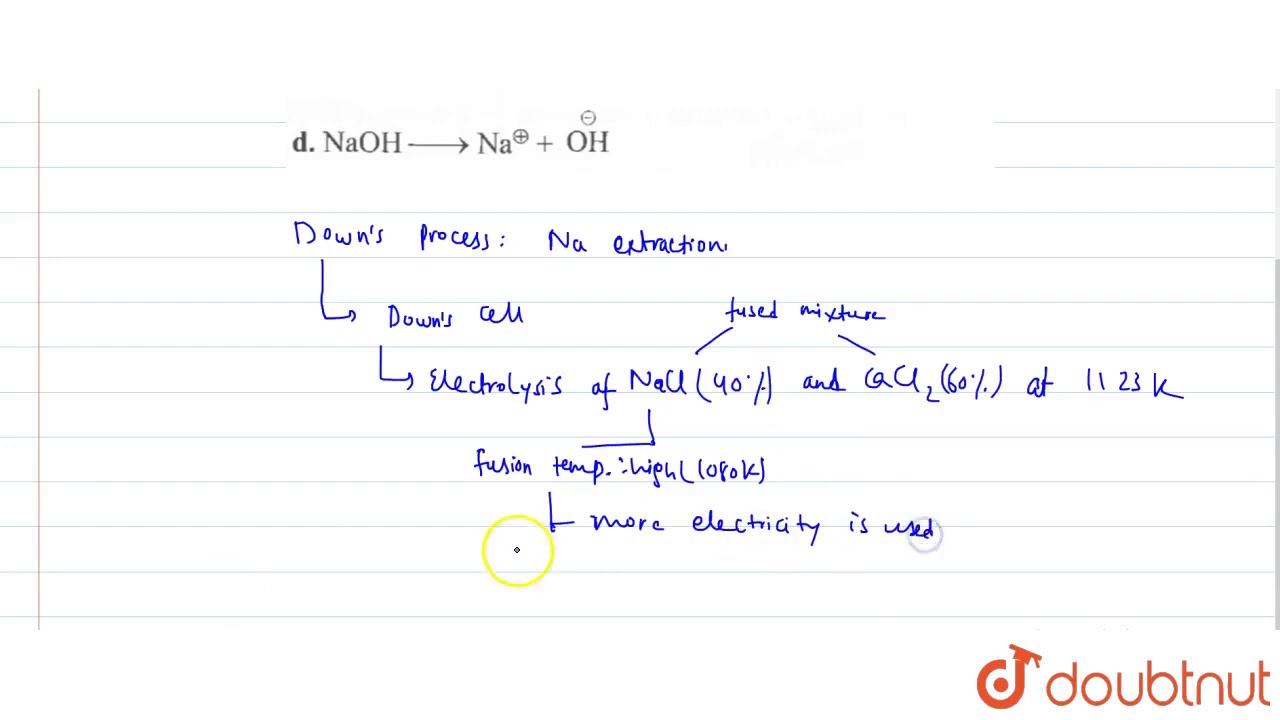 d. NaOH ⟶ Na⊕ + O⊖H
Down's process: Na extraction.
Down's cell
fused mixture
Electrolysis of NaCl (40%) and CaCl₂ (60%) at 1123 K
fusion temp.: high (1080K)
more electricity is used
doubtnut